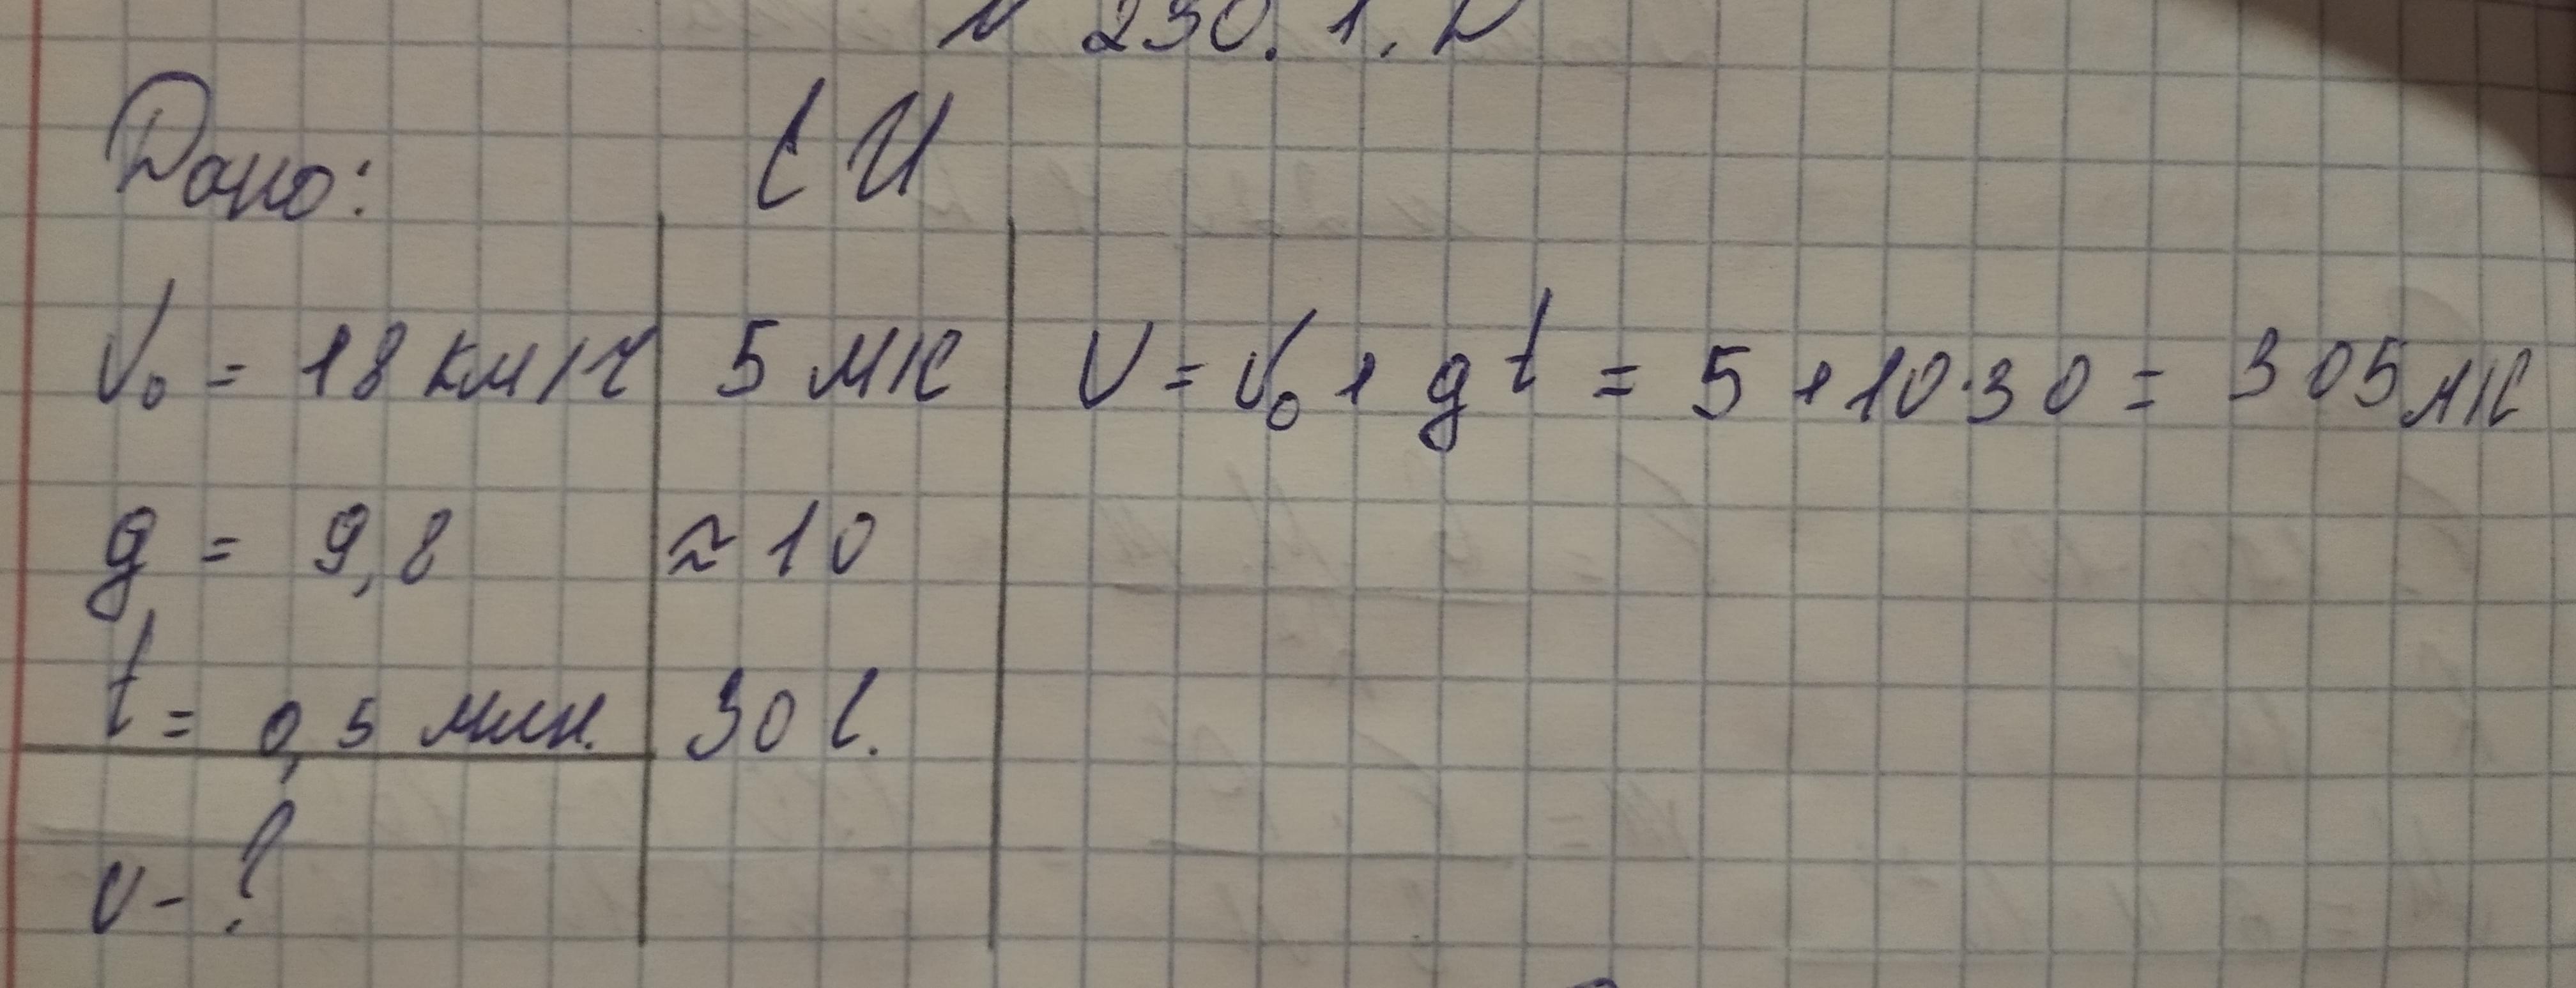 № 230. 1. D
Дано:
СИ
V₀ = 18 км/ч
5 м/с
V = V₀ + gt = 5 + 10·30 = 305 м/с
g = 9,8
≈ 10
t = 0,5 мин.
30 с.
v - ?